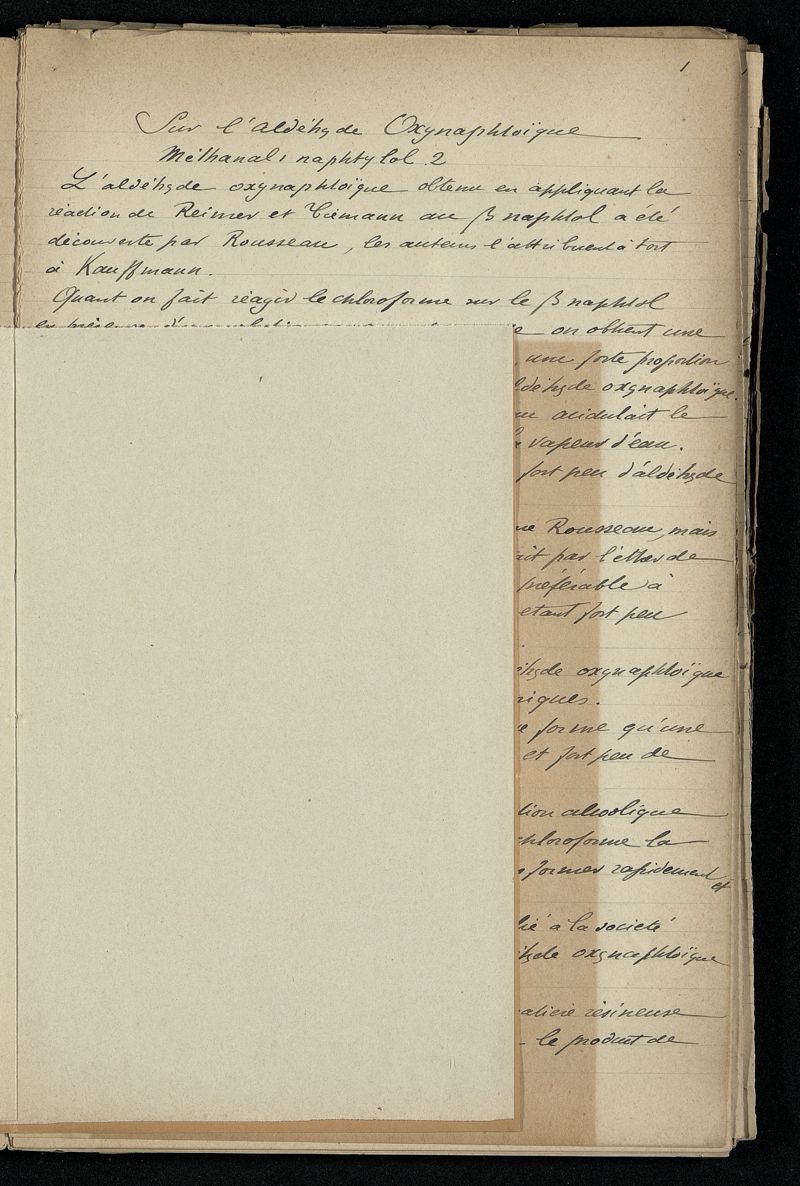 1
Sur l'aldéhyde Oxynaphtoïque
Méthanal 1 naphtylol 2
L'aldéhyde oxynaphtoïque obtenu en appliquant la
réaction de Reimer et Tiemann au β naphtol a été
découverte par Rousseau, les auteurs l'attribuent à tort
à Kauffmann.
Quant on fait réagir le chloroforme sur le β naphtol
on obtient une
une forte proportion
ldéhyde oxynaphtoïque.
acidulait le
vapeur d'eau.
fort peu d'aldéhyde
Rousseau, mais
ait par l'éther de
préférable à
etant fort peu
éhyde oxynaphtoïque
riques.
forme qu'une
et fort peu de
tion alcoolique
chloroforme la
former rapidement
et
lié à la societé
hyde oxynaphtoïque
atière résineuse
le produit de